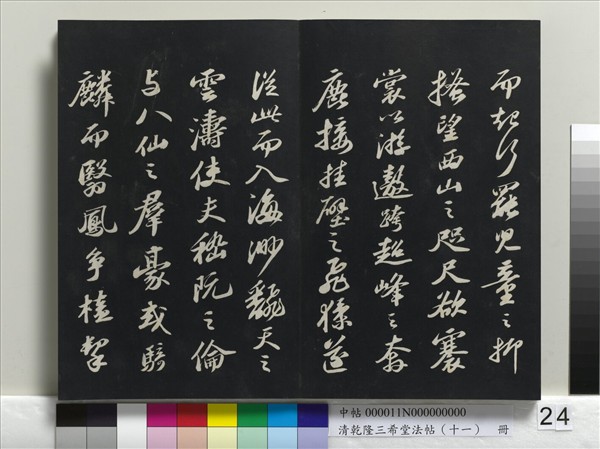 而起行罷兒童之抑
搔望西山之咫尺欲褰
裳以游遨跨超峰之奔
鹿接挂壁之飛猱遂
從此而入海渺翻天之
雲濤使夫嵇阮之倫
与八仙之羣豪或騎
麟而翳鳳争榼挈
中帖 000011N000000000
清乾隆三希堂法帖（十一） 冊
24